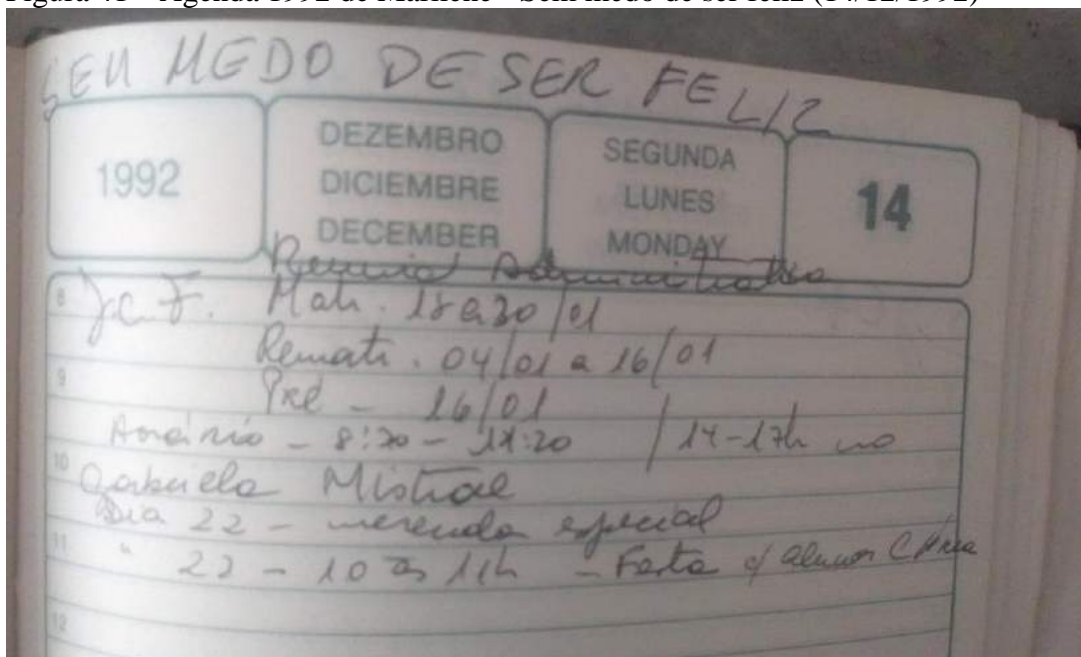 Figura 41 - Agenda 1992 de Marilene - Sem medo de ser feliz (14/12/1992)
SEM MEDO DE SER FELIZ
1992
DEZEMBRO
DICIEMBRE
DECEMBER
SEGUNDA
LUNES
MONDAY
14
Reunião Administrativa
8 J.C.F. Matr. 18 a 30/01
Rematr. 04/01 a 16/01
9
Pré - 16/01
Horário - 8:30 - 11:20 / 14-17h no
10
Gabriela Mistral
Dia 22 - merenda especial
11
" 22 - 10 às 11h - Festa c/ alunos
12